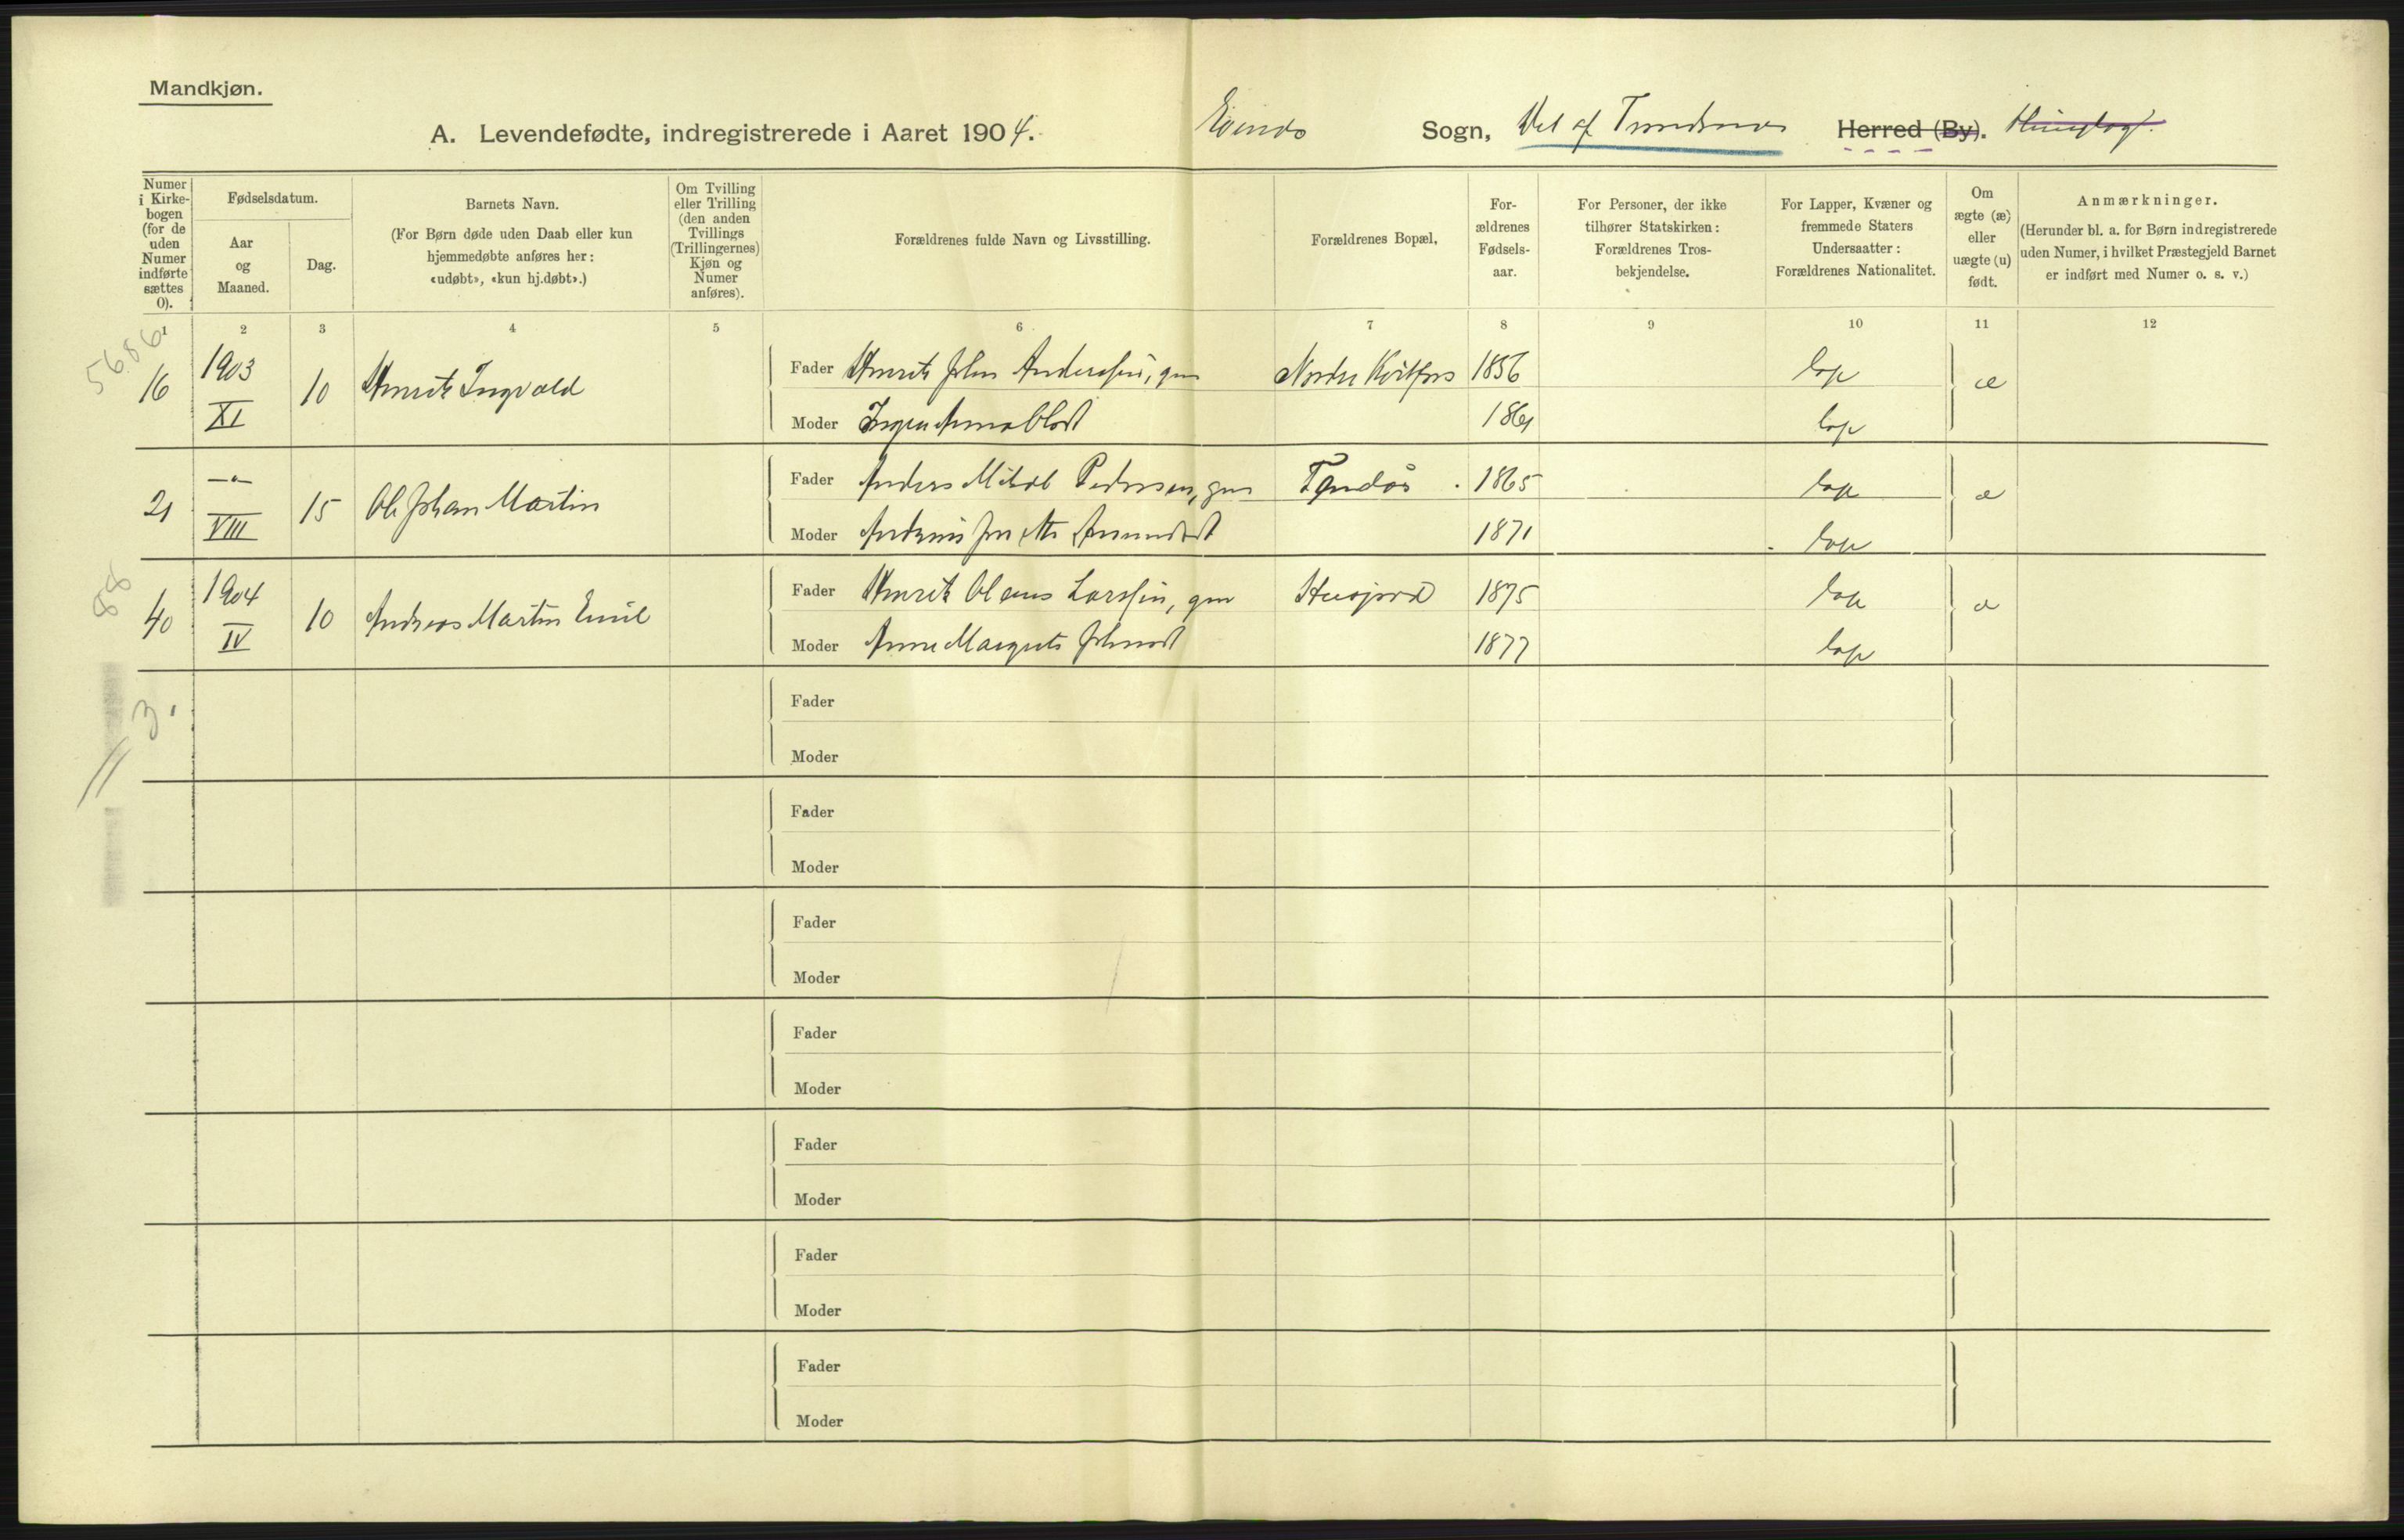 Mandkjøn.
A. Levendefødte, indregistrerede i Aaret 1904. Evenes Sogn, Del af Trondenes Herred (By).
Numer i Kirkebogen (for de uden Numer indførte sættes 0).
Fødselsdatum.
Aar og Maaned.
Dag.
Barnets Navn.
(For Børn døde uden Daab eller kun hjemmedøbte anføres her: «udøbt», «kun hj.døbt».)
Om Tvilling eller Trilling (den anden Tvillings (Trillingernes) Kjøn og Numer anføres).
Forældrenes fulde Navn og Livsstilling.
Forældrenes Bopæl,
Forældrenes Fødselsaar.
For Personer, der ikke tilhører Statskirken: Forældrenes Trosbekjendelse.
For Lapper, Kvæner og fremmede Staters Undersaatter: Forældrenes Nationalitet.
Om ægte (æ) eller uægte (u) født.
Anmærkninger.
(Herunder bl. a. for Børn indregistrerede uden Numer, i hvilket Præstegjeld Barnet er indført med Numer o. s. v.)
1 2 3 4 5 6 7 8 9 10 11 12
5686
16 1903 XI 10 Henrik Ingvald
Fader Henrik Johan Anderssen, gm Nordre Kvitfors 1856 lap æ
Moder Inger Anna Olsd 1861 lap
21 —"— VIII 15 Ole Johan Martin
Fader Anders Mikal Pedersen, gm 1865 lap æ
Moder Amundsd 1871 lap
88
40 1904 IV 10 Andreas Martin Emil
Fader Henrik Olaus Larssen, gm Husjord 1875 lap æ
Moder Anne Margrete Johnsd 1877 lap
3.
Fader
Moder
Fader
Moder
Fader
Moder
Fader
Moder
Fader
Moder
Fader
Moder
Fader
Moder